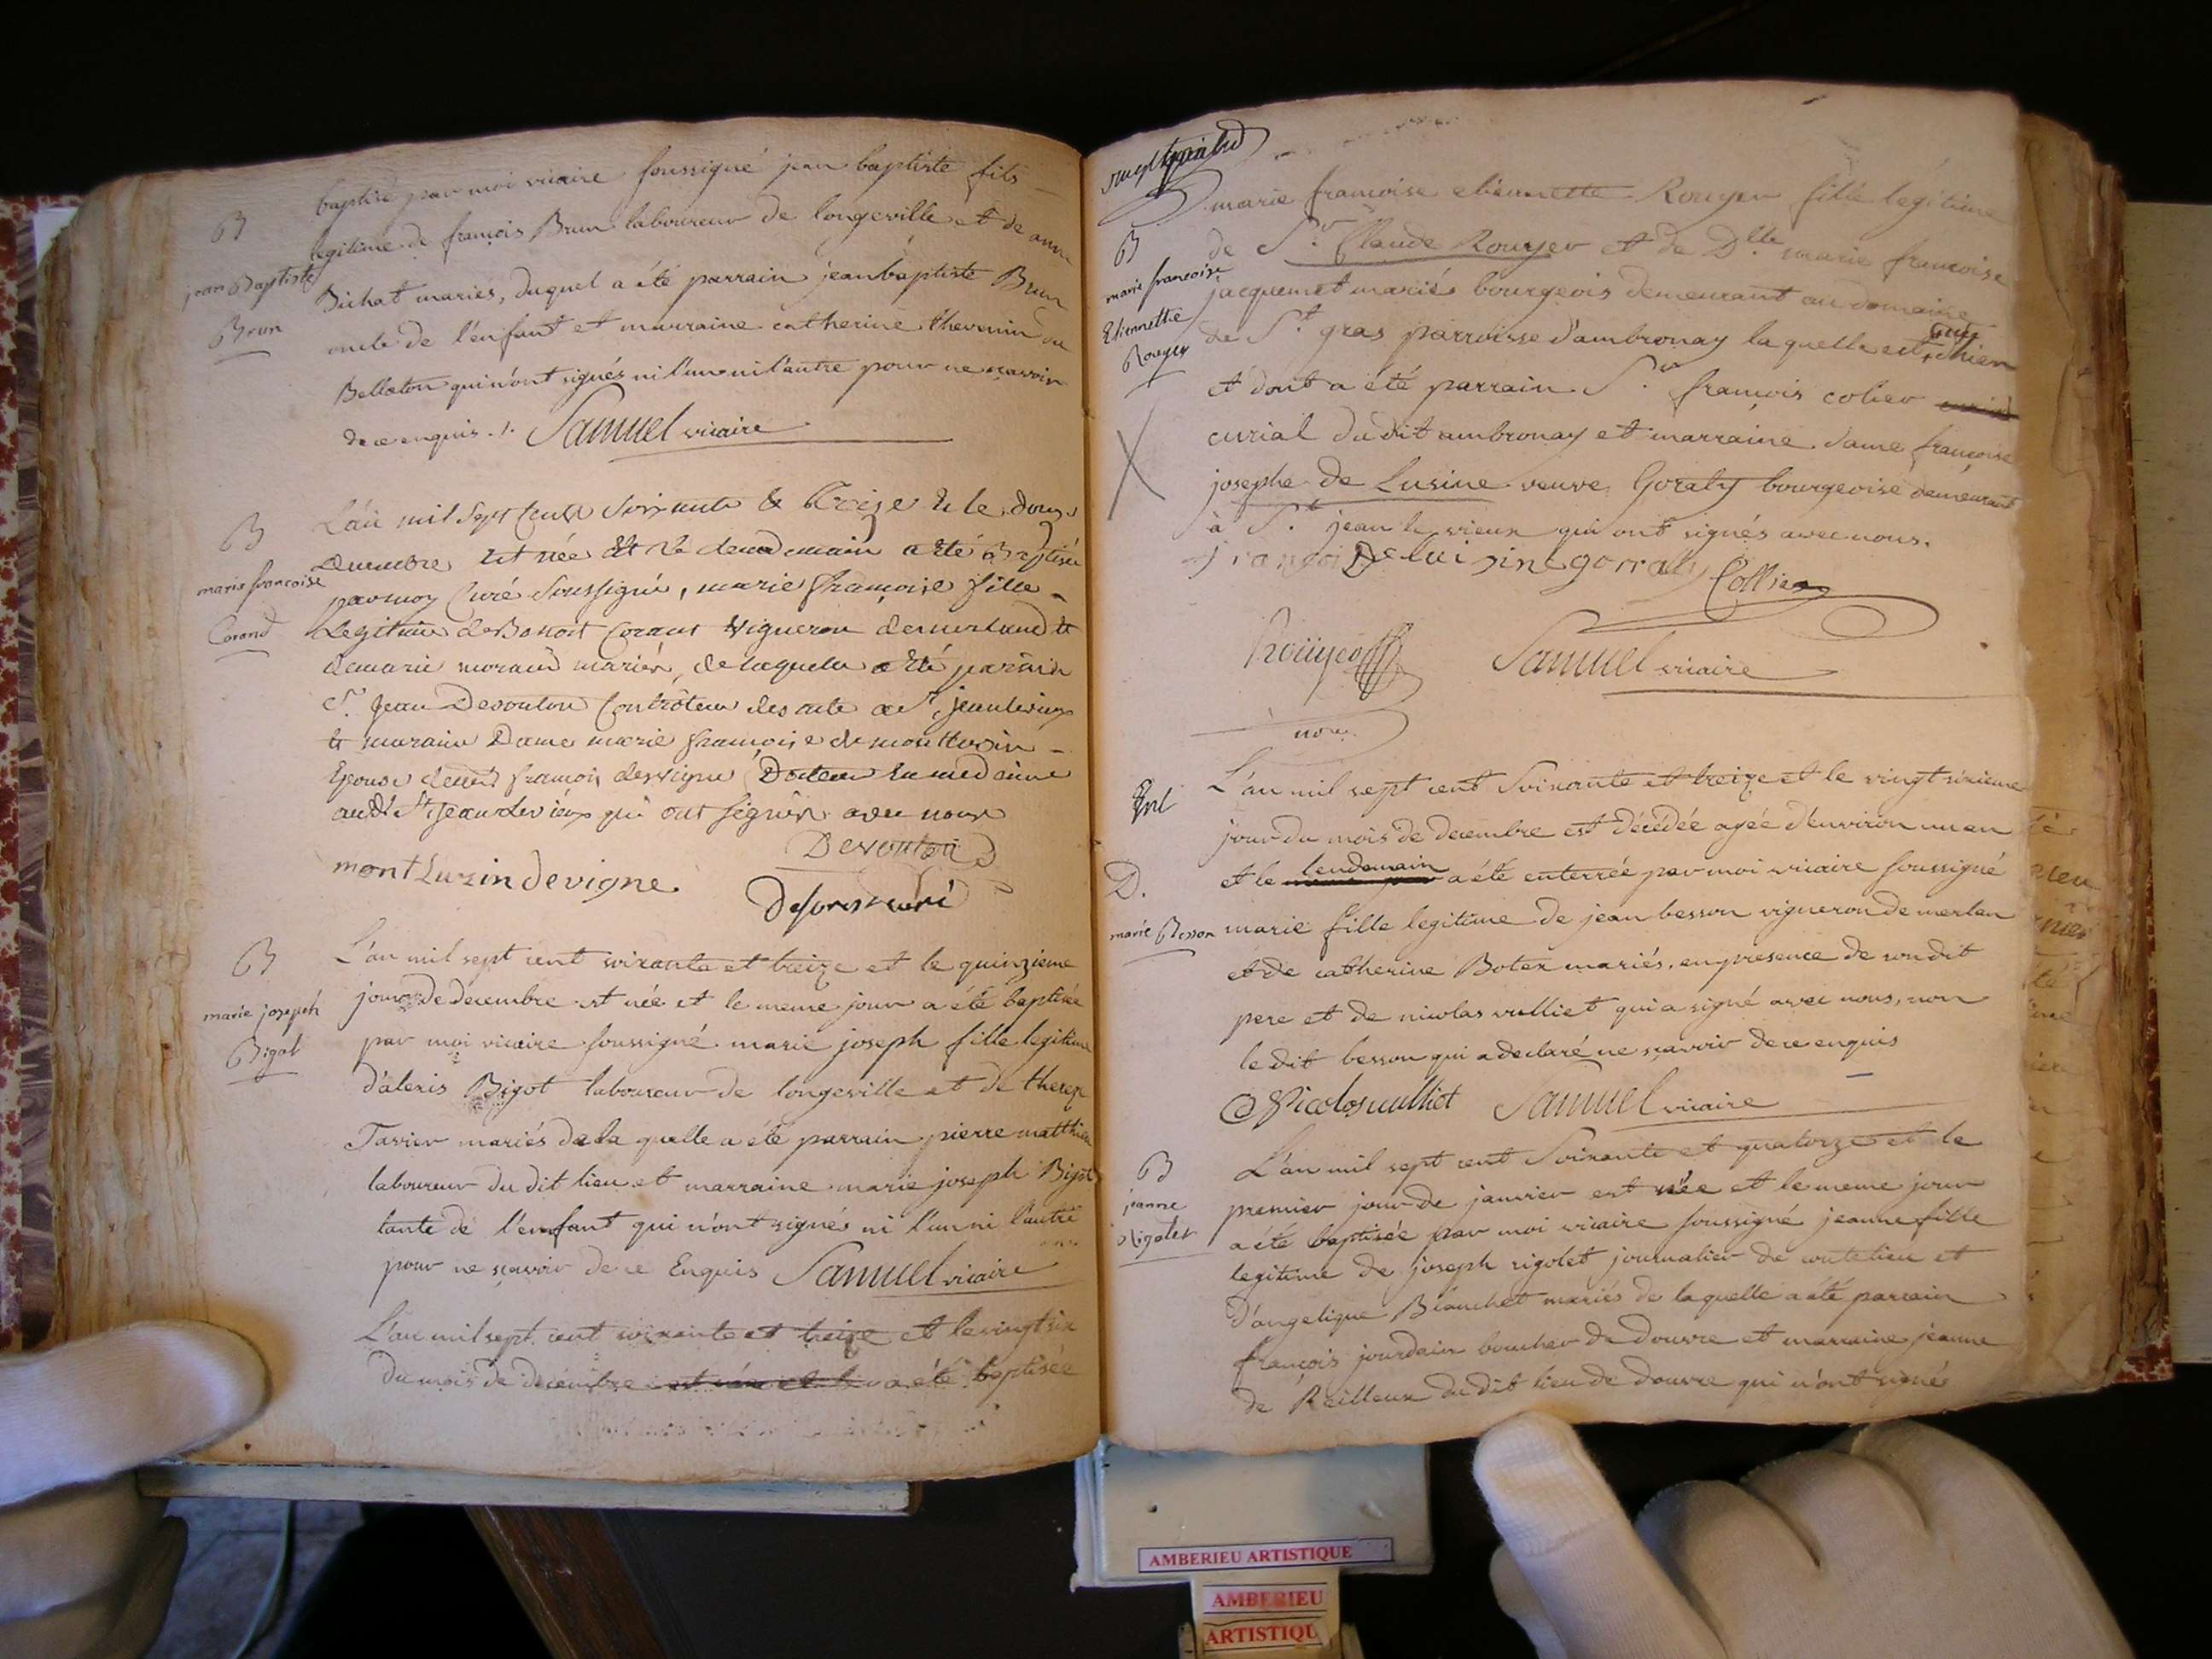 baptisé par moi vicaire soussigné jean baptiste fils
B
legitime de françois Brun laboureur de longeville et de anne
jean Baptiste
Brun
Bichat mariés, duquel a été parrain jean baptiste Brun
oncle de l'enfant et marraine catherine thevenin
Belleton qui n'ont signés ni l'un ni l'autre pour ne sçavoir
de ce enquis ./. Samuel vicaire
B
marie francoise
Corand
L'an mil sept cent soixante & treize & le douze
decembre est née et le lendemain a été Baptisée
par moy Curé soussigné, marie françoise fille
Legitime de Benoit Corant vigneron de merland et
de marie moraud mariés, de laquelle a été parain
Sr. Jean Desvouton Controleur des acte a St jean le vieux
et maraine Dame marie françoise de montluzin
Epouse de françois devigne Docteur en medecine
audt St Jean le vieux qui ont signés avec nous
montLuzin devigne Desvouton
curé
B
marie joseph
Bigot
L'an mil sept cent soixante et treize et le quinzieme
jour de decembre est née et le meme jour a été baptisée
par moi vicaire soussigné marie joseph fille legitime
d'alexis Bigot laboureur de longeville et de thereze
Tavier mariés de la quelle a été parrain pierre matthieu
laboureur du dit lieu et marraine marie joseph Bigot
tante de l'enfant qui n'ont signés ni l'un ni l'autre
pour ne sçavoir de ce Enquis Samuel vicaire
L'an mil sept cent soixante et treize et le vingt six
du mois de decembre est née et le a été baptisée
marie françoise etiennette Rouyer fille légitime
B
marie françoise
Etiennette
Rouyer
de Sr. Claude Rouyer et de Dlle. marie francoise
jacquemet mariés bourgeois demeurant au domaine
de St gras parroisse d'ambronay la quelle est née hier
et dont a été parrain Sr françois colier
curial du dit ambronay et marraine dame françoise
josephe de Lusine veuve Goraly bourgeoise demeurant
à St jean le vieux qui ont signés avec nous.
françoi De luisine gorraly Collier
Rouyer Samuel vicaire
L'an mil sept cent Soixante et treize et le vingt sixieme
jour du mois de decembre est décédée agée d'environ un an
D.
marie Besson
et le lendemain a été enterrée par moi vicaire soussigné
marie fille legitime de jean besson vigneron de merlan
et de catherine Botex mariés, en presence de son dit
pere et de nicolas vulliet qui a signé avec nous, non
le dit besson qui a declaré ne sçavoir de ce enquis
Nicolos vulliet Samuel vicaire
B
jeanne
Rigolet
L'an mil sept cent Soixante et quatorze et le
premier jour de janvier est née et le meme jour
a été baptisée par moi vicaire soussigné jeanne fille
legitime de joseph rigolet journalier de coutelieu et
d'angelique Blanchet mariés de laquelle a été parrain
françois jourdain boucher de douvre et marraine jeanne
de Reilleux du dit lieu de douvre qui n'ont signés
AMBERIEU ARTISTIQUE
AMBERIEU
ARTISTIQU